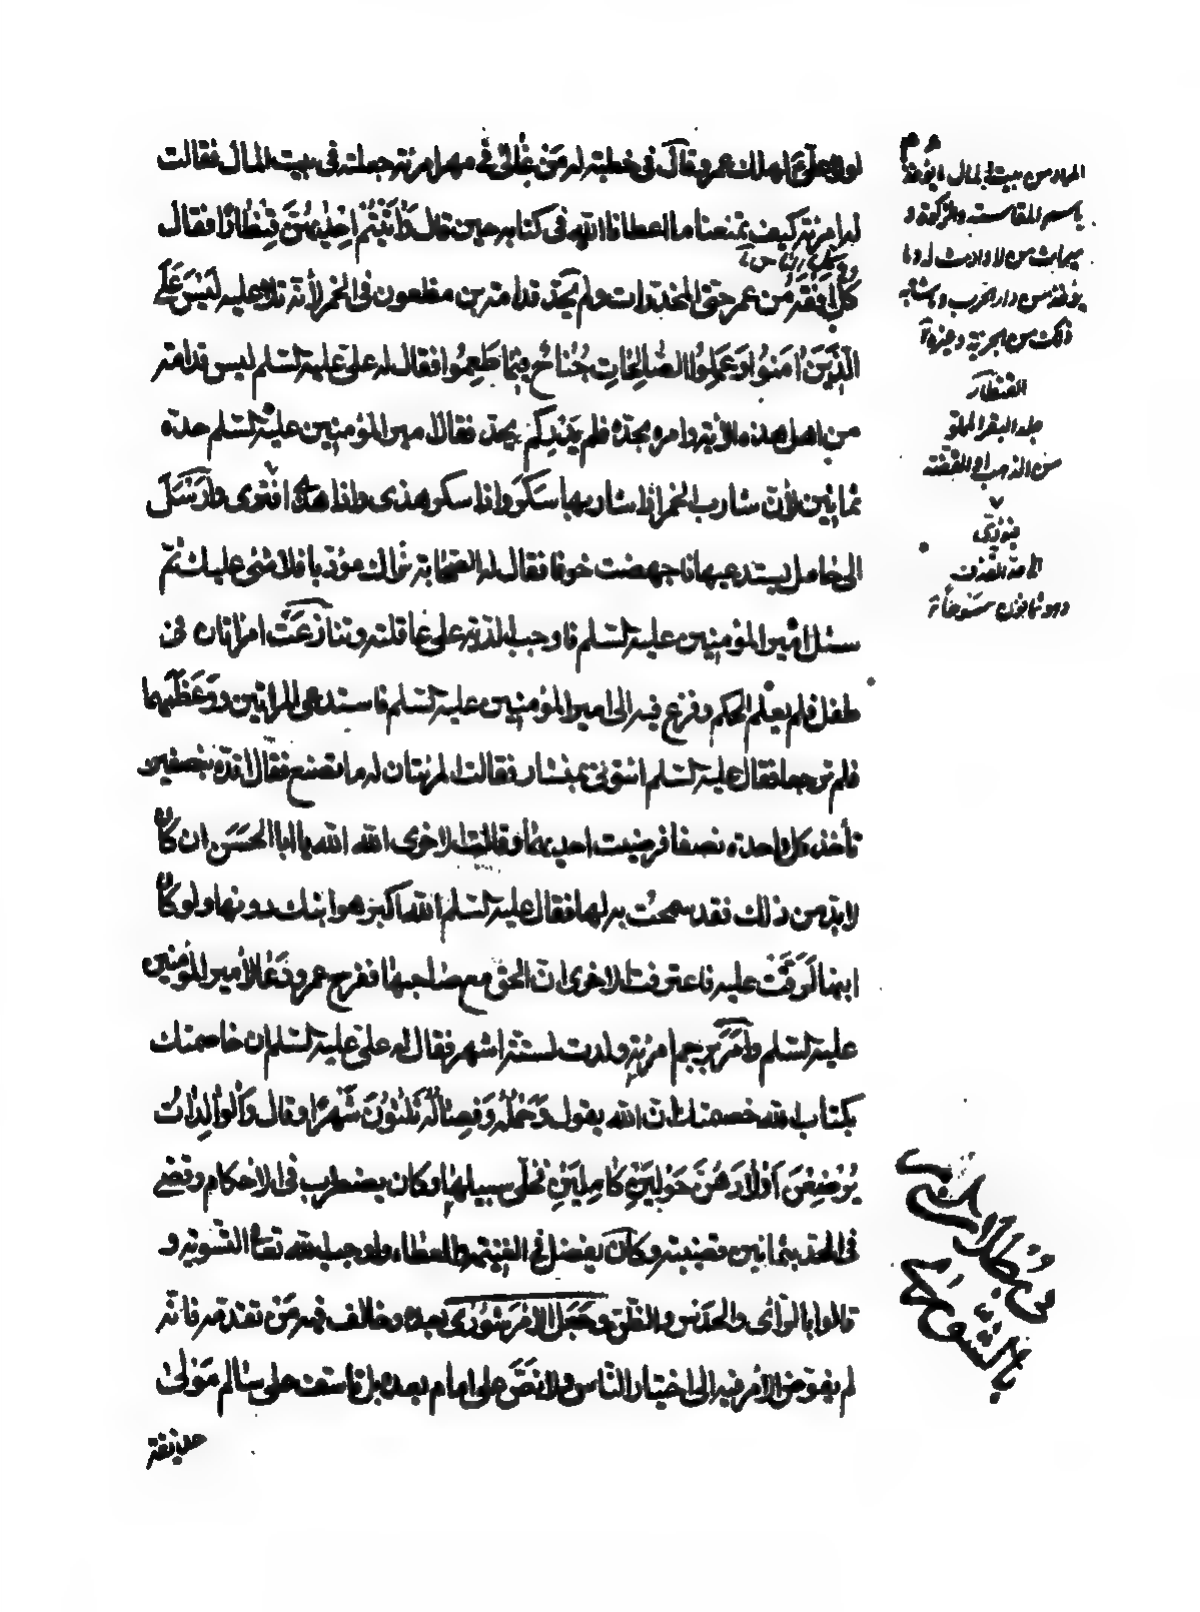 لولا علي لهلك عمر وقال في خطبة له من غالى في مهر امرئة جعلته في بيت المال فقالت
له امرئة كيف تمنعنا ما اعطانا الله في كتابه حين قال وَاٰتَيْتُمْ اِحْدٰيهُنَّ قِنْطٰارًا فقال
كل افقه من عمر حتى المخدرات ولم يحد قدامة بن مظعون في الخمر لأنه تلا عليه لَيْسَ عَلَى
الَّذِينَ اٰمَنُوا وَعَمِلُوا الصّٰالِحٰاتِ جُنٰاحٌ فِيمٰا طَعِمُوا فقال له علي عليه السلم ليس قدامة
من اهل هذه الاية وامره بحده فلم يدر كم يحد فقال امير المؤمنين عليه السلم حده
ثمانين لأن شارب الخمر اذا شاربها سكر واذا سكر هذى واذا هذى افترى وارسل
الى حامل يستدعيها فاجهضت خوفا فقال له الصحابة نراك مؤدبا فلا شئ عليك ثم
سئل امير المؤمنين عليه السلم فاوجب الدية على عاقلته وتنازعت امرأتان في
طفل فلم يعلم الحكم وفزع فيه الى امير المؤمنين عليه السلم فاستدعى المراتين ووعظهما
فلم ترجعا فقال عليه السلم ائتوني بمنشار فقالت المرئتان له ما تصنع فقال اقده بنصفين
تأخذ كل واحدة نصفا فرضيت احديهما وقالت الاخرى الله الله يا ابا الحسن ان كان
لابد من ذلك فقد سمحت به لها فقال عليه السلم الله اكبر هو ابنك دونها ولو كان
ابنها لرقت عليه فاعترفت الاخرى ان الحق مع صاحبها ففرح عمر ودعا لأمير المؤمنين
عليه السلم وامر برجم امرئة ولدت لستة اشهر فقال له علي عليه السلم ان خاصمتك
بكتاب الله خصمتك ان الله يقول وَحَمْلُهُ وَفِصٰالُهُ ثَلٰثُونَ شَهْرًا وقال وَالْوٰالِدٰاتُ
يُرْضِعْنَ اَوْلٰادَهُنَّ حَوْلَيْنِ كٰامِلَيْنِ فخلى سبيلها وكان يضطرب في الاحكام وقضى
في الحد بثمانين قضية وكان يفضل في الغنيمة والعطاء واوجب الله تعالى التسوية و
قالوا بالرأى والحدس والظن وجعل الامر شورى بعده وخالف فيه من تقدمه فانه
لم يفوض الأمر فيه الى اختيار الناس ولا نص على امام بعده بل تاسف على سالم مولى
حذيفة
المراد من بيت المال ما يؤخذ
باسم المقاسمة والزكوة و
ميراث من لا وارث له وما
يؤخذ من دار الحرب وما شابه
ذلك من الجزية وغيرها
القنطار
جلد البقر المملو
من الذهب او الفضة
افترى
اى حد القذف
وهو ثمانون
في بطلان
بالشورى